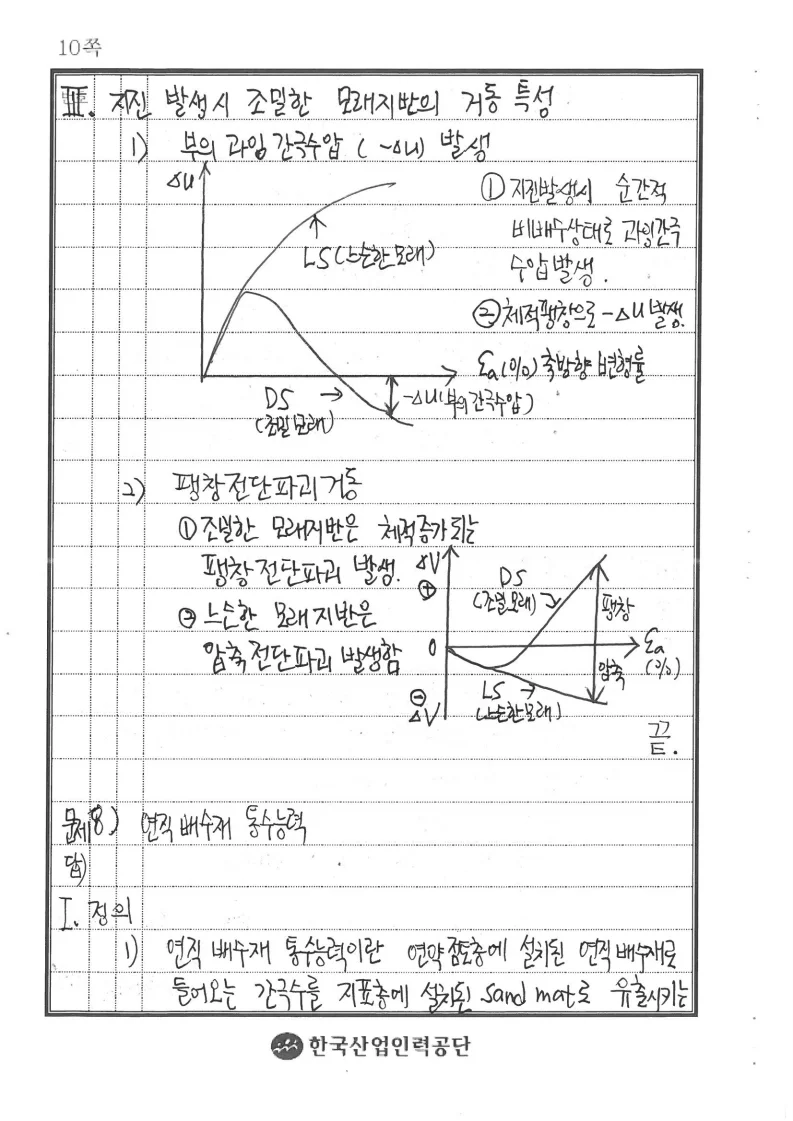 10쪽
Ⅲ. 지진 발생시 조밀한 모래지반의 거동 특성
1) 부의 과잉간극수압 ( -Δu) 발생
Δu
① 지진발생시 순간적
비배수상태로 과잉간극
수압발생.
LS(느슨한모래)
② 체적팽창으로 -Δu 발생.
εa(%) 축방향 변형률
DS →
(조밀모래)
-Δu(부의 간극수압)
2) 팽창전단파괴거동
① 조밀한 모래지반은 체적증가되는
팽창전단파괴 발생.
② 느슨한 모래 지반은
압축전단파괴 발생함
ΔV
⊕
DS
(조밀모래)
팽창
0
εa
(%)
압축
⊖
ΔV
LS →
(느슨한모래)
끝.
문제8) 연직배수재 통수능력
답)
Ⅰ. 정의
1) 연직 배수재 통수능력이란 연약점토층에 설치된 연직배수재로
들어오는 간극수를 지표층에 설치된 sand mat로 유출시키는
한국산업인력공단